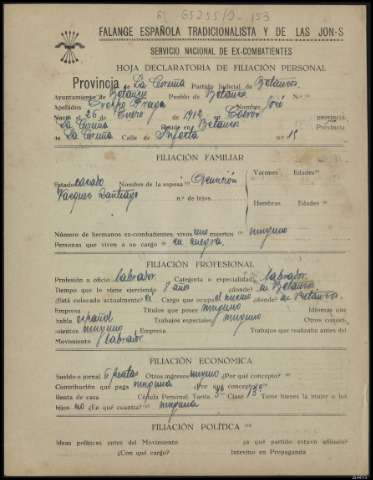 FALANGE ESPAÑOLA TRADICIONALISTA Y DE LAS JON-S
SERVICIO NACIONAL DE EX-COMBATIENTES
HOJA DECLARATORIA DE FILIACIÓN PERSONAL
Provincia de La Coruña Partido Judicial de Betanzos
Ayuntamiento de Betanzos Pueblo de Betanzos N.º
Apellidos Crespo Fraga Nombre José
Nació el 26 de Enero de 1912 en Provincia
La Coruña Reside en Betanzos Provincia
La Coruña Calle de n.º 15
FILIACIÓN FAMILIAR
Estado casado Nombres de la esposa Asunción Varones Edades
Vazquez Santiago n.º de hijos
Hembras Edades
Número de hermanos ex-combatientes, vivos uno muertos ninguno
Personas que viven a su cargo su suegra.
FILIACIÓN PROFESIONAL
Profesión u oficio labrador. Categoría o especialidad labrador
Tiempo que lo viene ejerciendo año ¿dónde? en Betanzos
¿Está colocado actualmente? Cargo que ocupa el mismo ¿dónde? en Betanzos.
Empresa Títulos que posee ninguno Idiomas que
habla español Trabajos especiales ninguno Otros conoci-
mientos ninguno Empresa Trabajos que realizaba antes del
Movimiento labrador
FILIACIÓN ECONÓMICA
Sueldo o jornal 6 pesetas Otros ingresos ninguno ¿Por qué concepto?
Contribución que paga ninguna ¿Por qué concepto?
Renta de casa Cédula Personal Tarifa Clase 13ª Tiene bienes la mujer o los
hijos no ¿En qué cuantía? ninguna
FILIACIÓN POLÍTICA
Ideas políticas antes del Movimiento ¿a qué partido estuvo afiliado?
¿Con qué cargo? Intervino en Propaganda